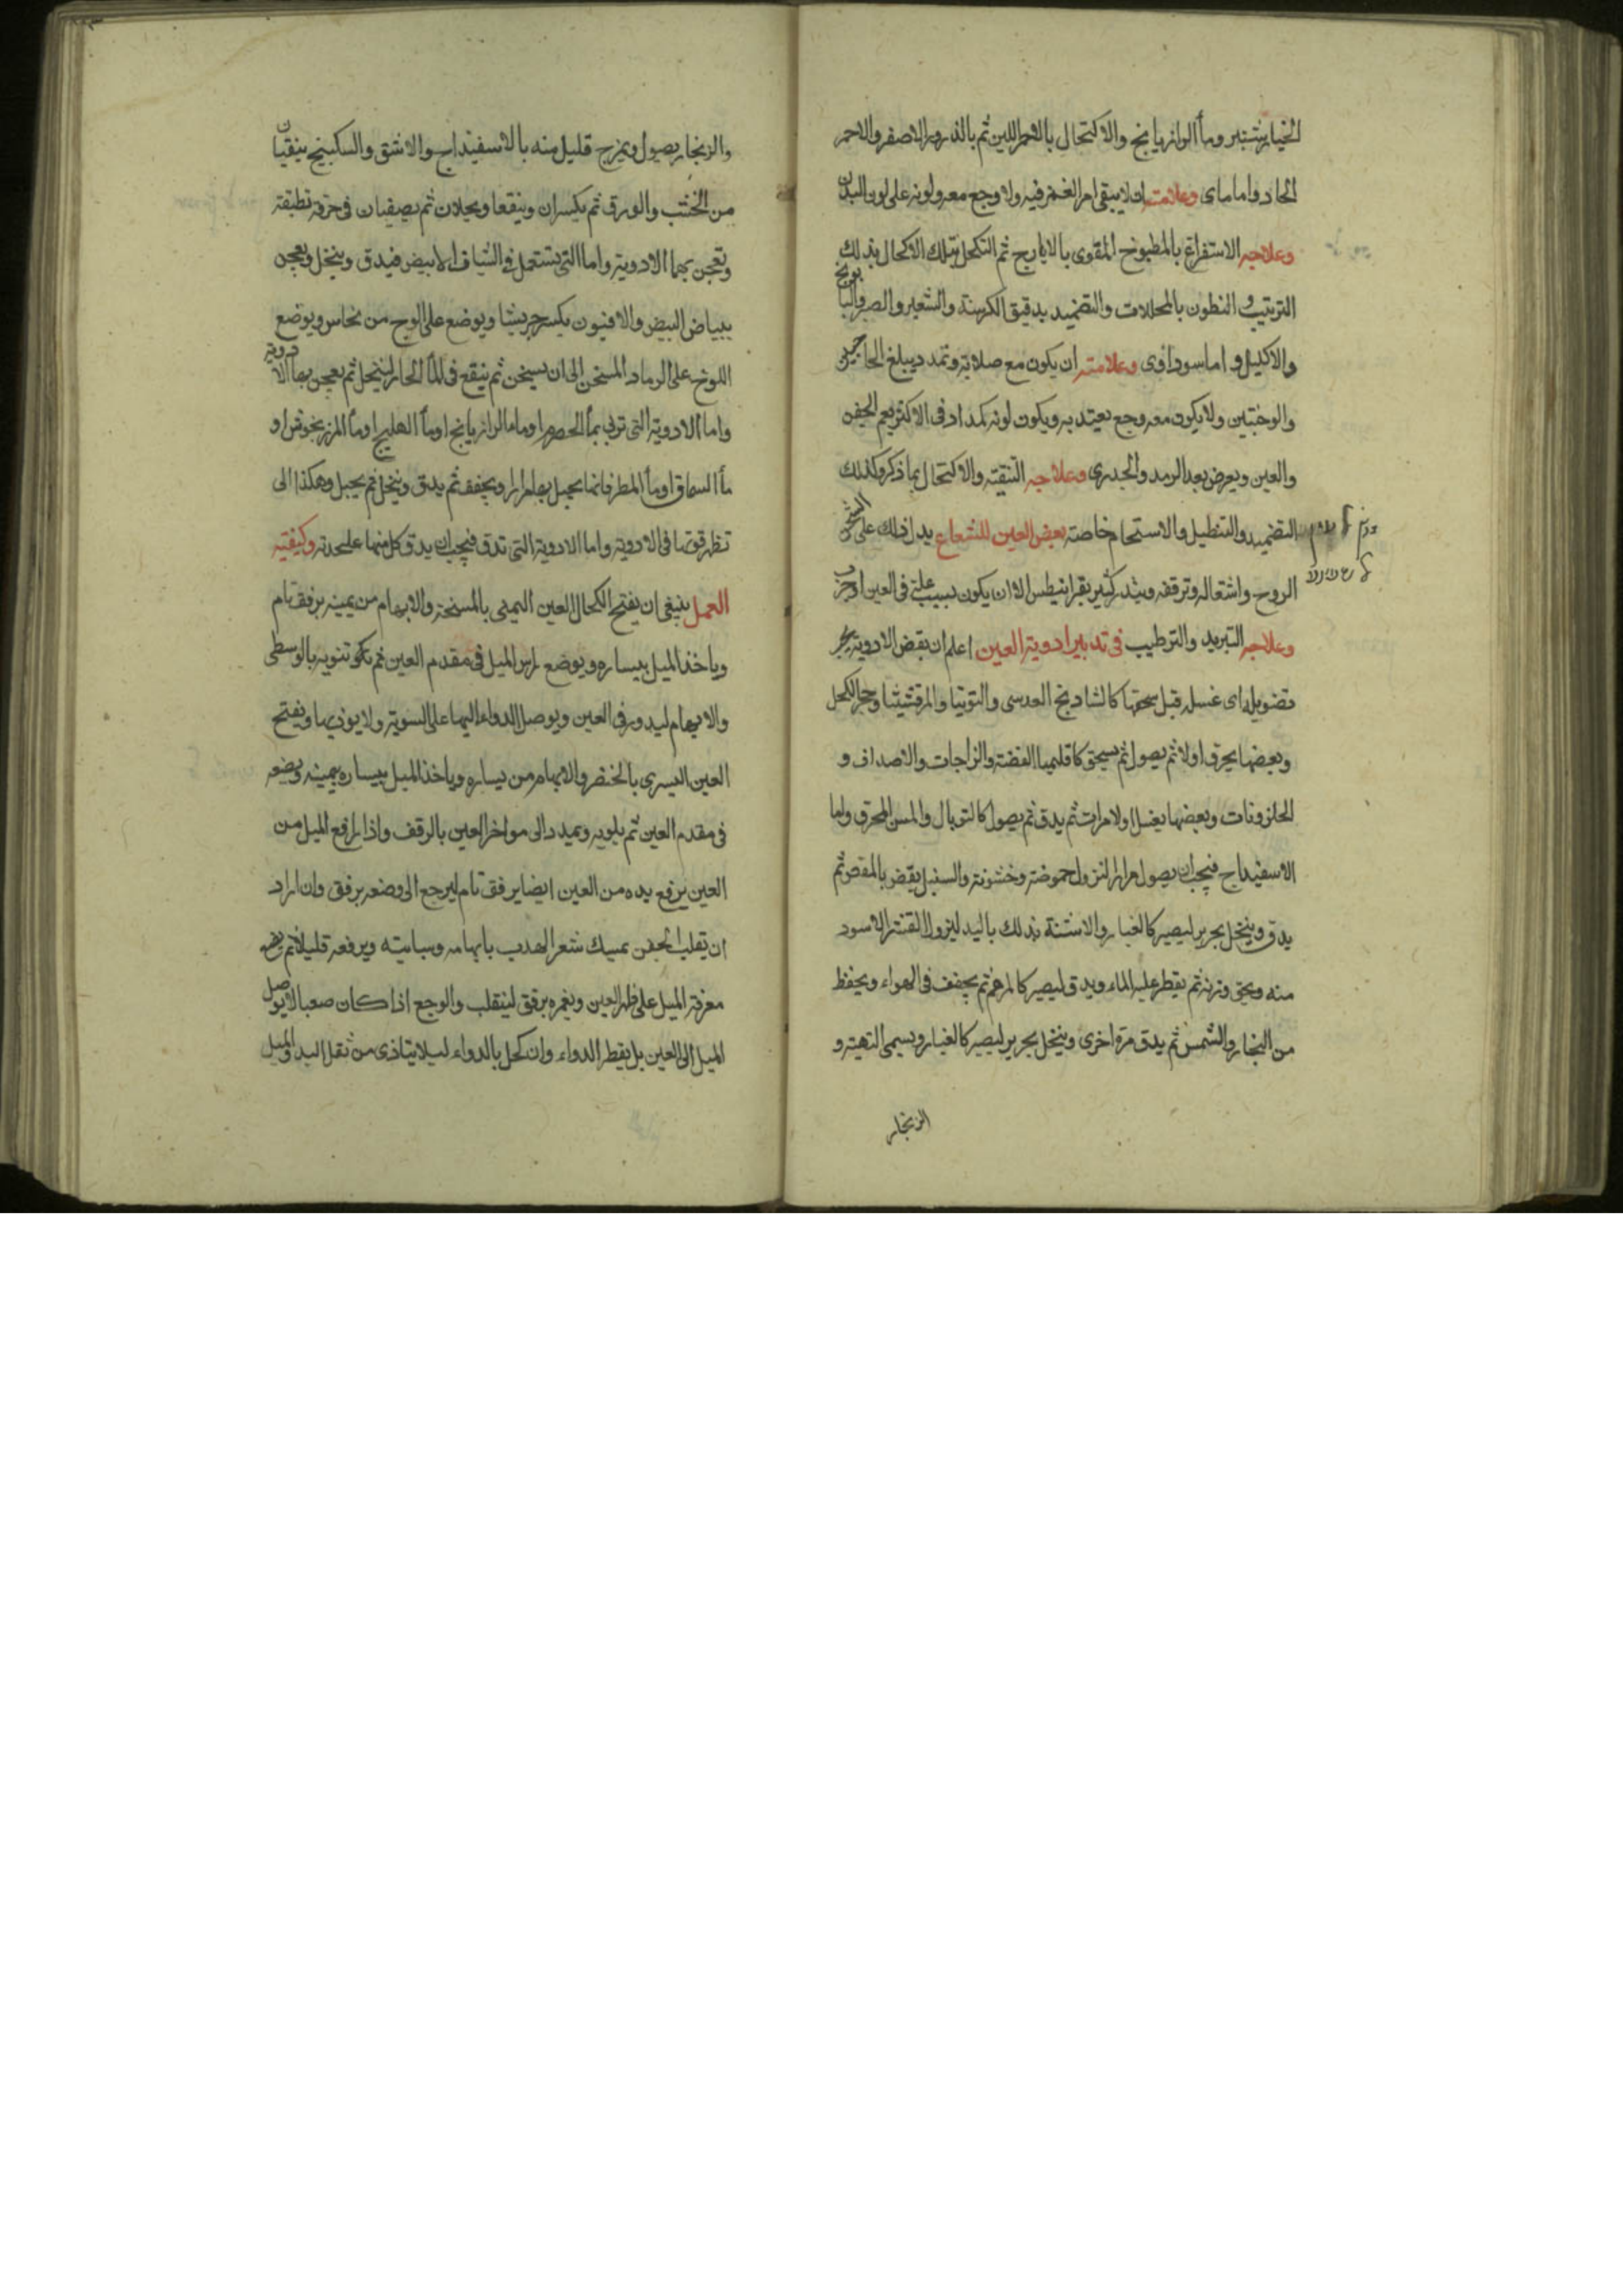 الخيارشنبر وماء الرازيانج والاكتحال بالاحمر اللين ثم بالذرور الاصفر والاحمر
الحاد واما مای وعلامته ان لا يبقى اثر الغمز فيه ولا وجع معه ولونه على لون البدن
وعلاجه الاستفراغ بالمطبوخ المقوى بالايارج ثم التكحل بتلك الاكحال بذلك
الترتيب و النطول بالمحللات والتضميد بدقيق الكرسنة والشعير والصبر والبابونج
والاكليل و اما سوداوی وعلامته ان يكون مع صلابة وتمدد يبلغ الحاجبين
والوجنتين ولا يكون معه وجع يعتد به ويكون لونه كمدا وفى الاكثر يعم الجفن
والعين ويعرض بعد الرمد والجدرى وعلاجه التنقية والاكتحال بما ذكر وكذلك
التضميد والتنطيل والاستحمام خاصة بغض العين للشعاع يدل ذلك على
الروح واشتعاله وترققه وينذر كثير بقرانيطس الا ان يكون بسبب علة فى العين او جرب
وعلاجه التبريد والترطيب فى تدبير ادوية العين اعلم ان بعض الادوية يجب
تصويله اى غسله قبل سحقها كالشادنج العدسى والتوتيا والمرقشيشا وحجر الكحل
وبعضها يحرق اولا ثم يصول ثم يسحق كاقليميا الفضة والزاجات والاصداف و
الحلزونات وبعضها يغسل اولا مرات ثم يدق ثم يصول كالتوبال والمس المحرق واما
الاسفيداج فيجب ان يصول مرارا لتزول حموضته وخشونته والسنبل يقرض بالمقص ثم
يدق وينخل بحرير ليصير كالغبار والاشنة تدلك باليد ليزول القشر الاسود
منه ويبقى وزنه ثم يقطر عليه الماء ويدق ليصير كالمرهم ثم يجفف فى الهواء ويحفظ
من البخار والشمس ثم يدق مرة اخرى وينخل بحرير ليصير كالغبار ويسمى التهيئة و
الزنجار
والزنجار يصول ويمزج قليل منه بالاسفيداج والاشق والسكبينج ينقيان
من الخشب والورق ثم يكسران وينقعا ويحلان ثم يصفيان فى خرقة
وتعجن بهما الادوية واما التى تستعمل فى الشياف الابيض فيدق وينخل ويعجن
ببياض البيض والافيون يكسر جريشا ويوضع على لوح من نحاس ويوضع
اللوح على الرماد المسخن الى ان يسخن ثم ينقع فى الماء الحار لينحل ثم يعجن بها الادوية
واما الادوية التى تربى بماء الحصرم او ماء الرازيانج او ماء الهليلج او ماء المرزنجوش او
ماء السماق او ماء المطر فانما يجبل بها مرارا ويجفف ثم يدق وينخل ثم يجبل وهكذا الى
تظهر قوتها فى الادوية واما الادوية التى تدق فيجب ان يدق كل منها علىحدته وكيفية
العمل ينبغى ان يفتح الكحال العين اليمنى بالمسبحة والابهام من يمينه برفق تام
وياخذ الميل بيساره ويوضع راس الميل فى مقدم العين ثم بالوسطى
والابهام ليدور فى العين ويوصل الدواء اليها على السوية ولا يوذيها ويفتح
العين اليسرى بالخنصر والابهام من يساره وياخذ الميل بيمينه ويضعه
فى مقدم العين ثم يلويه ويمدد الى مواخر العين بالرفق واذا رفع الميل من
العين يرفع يده من العين ايضا برفق تام ليرجع الى وضعه برفق وان اراد
ان تقلب الجفن يمسك شعر الهدب بابهامه وسبابته ويرفعه قليلا ثم يضع
مغرفة الميل على ظهر العين ويغمزه برفق لينقلب والوجع اذا كان صعبا لا يوصل
الميل الى العين بل يقطر الدواء وان كحل بالدواء ليلا يتاذى من ثقل اليد والميل